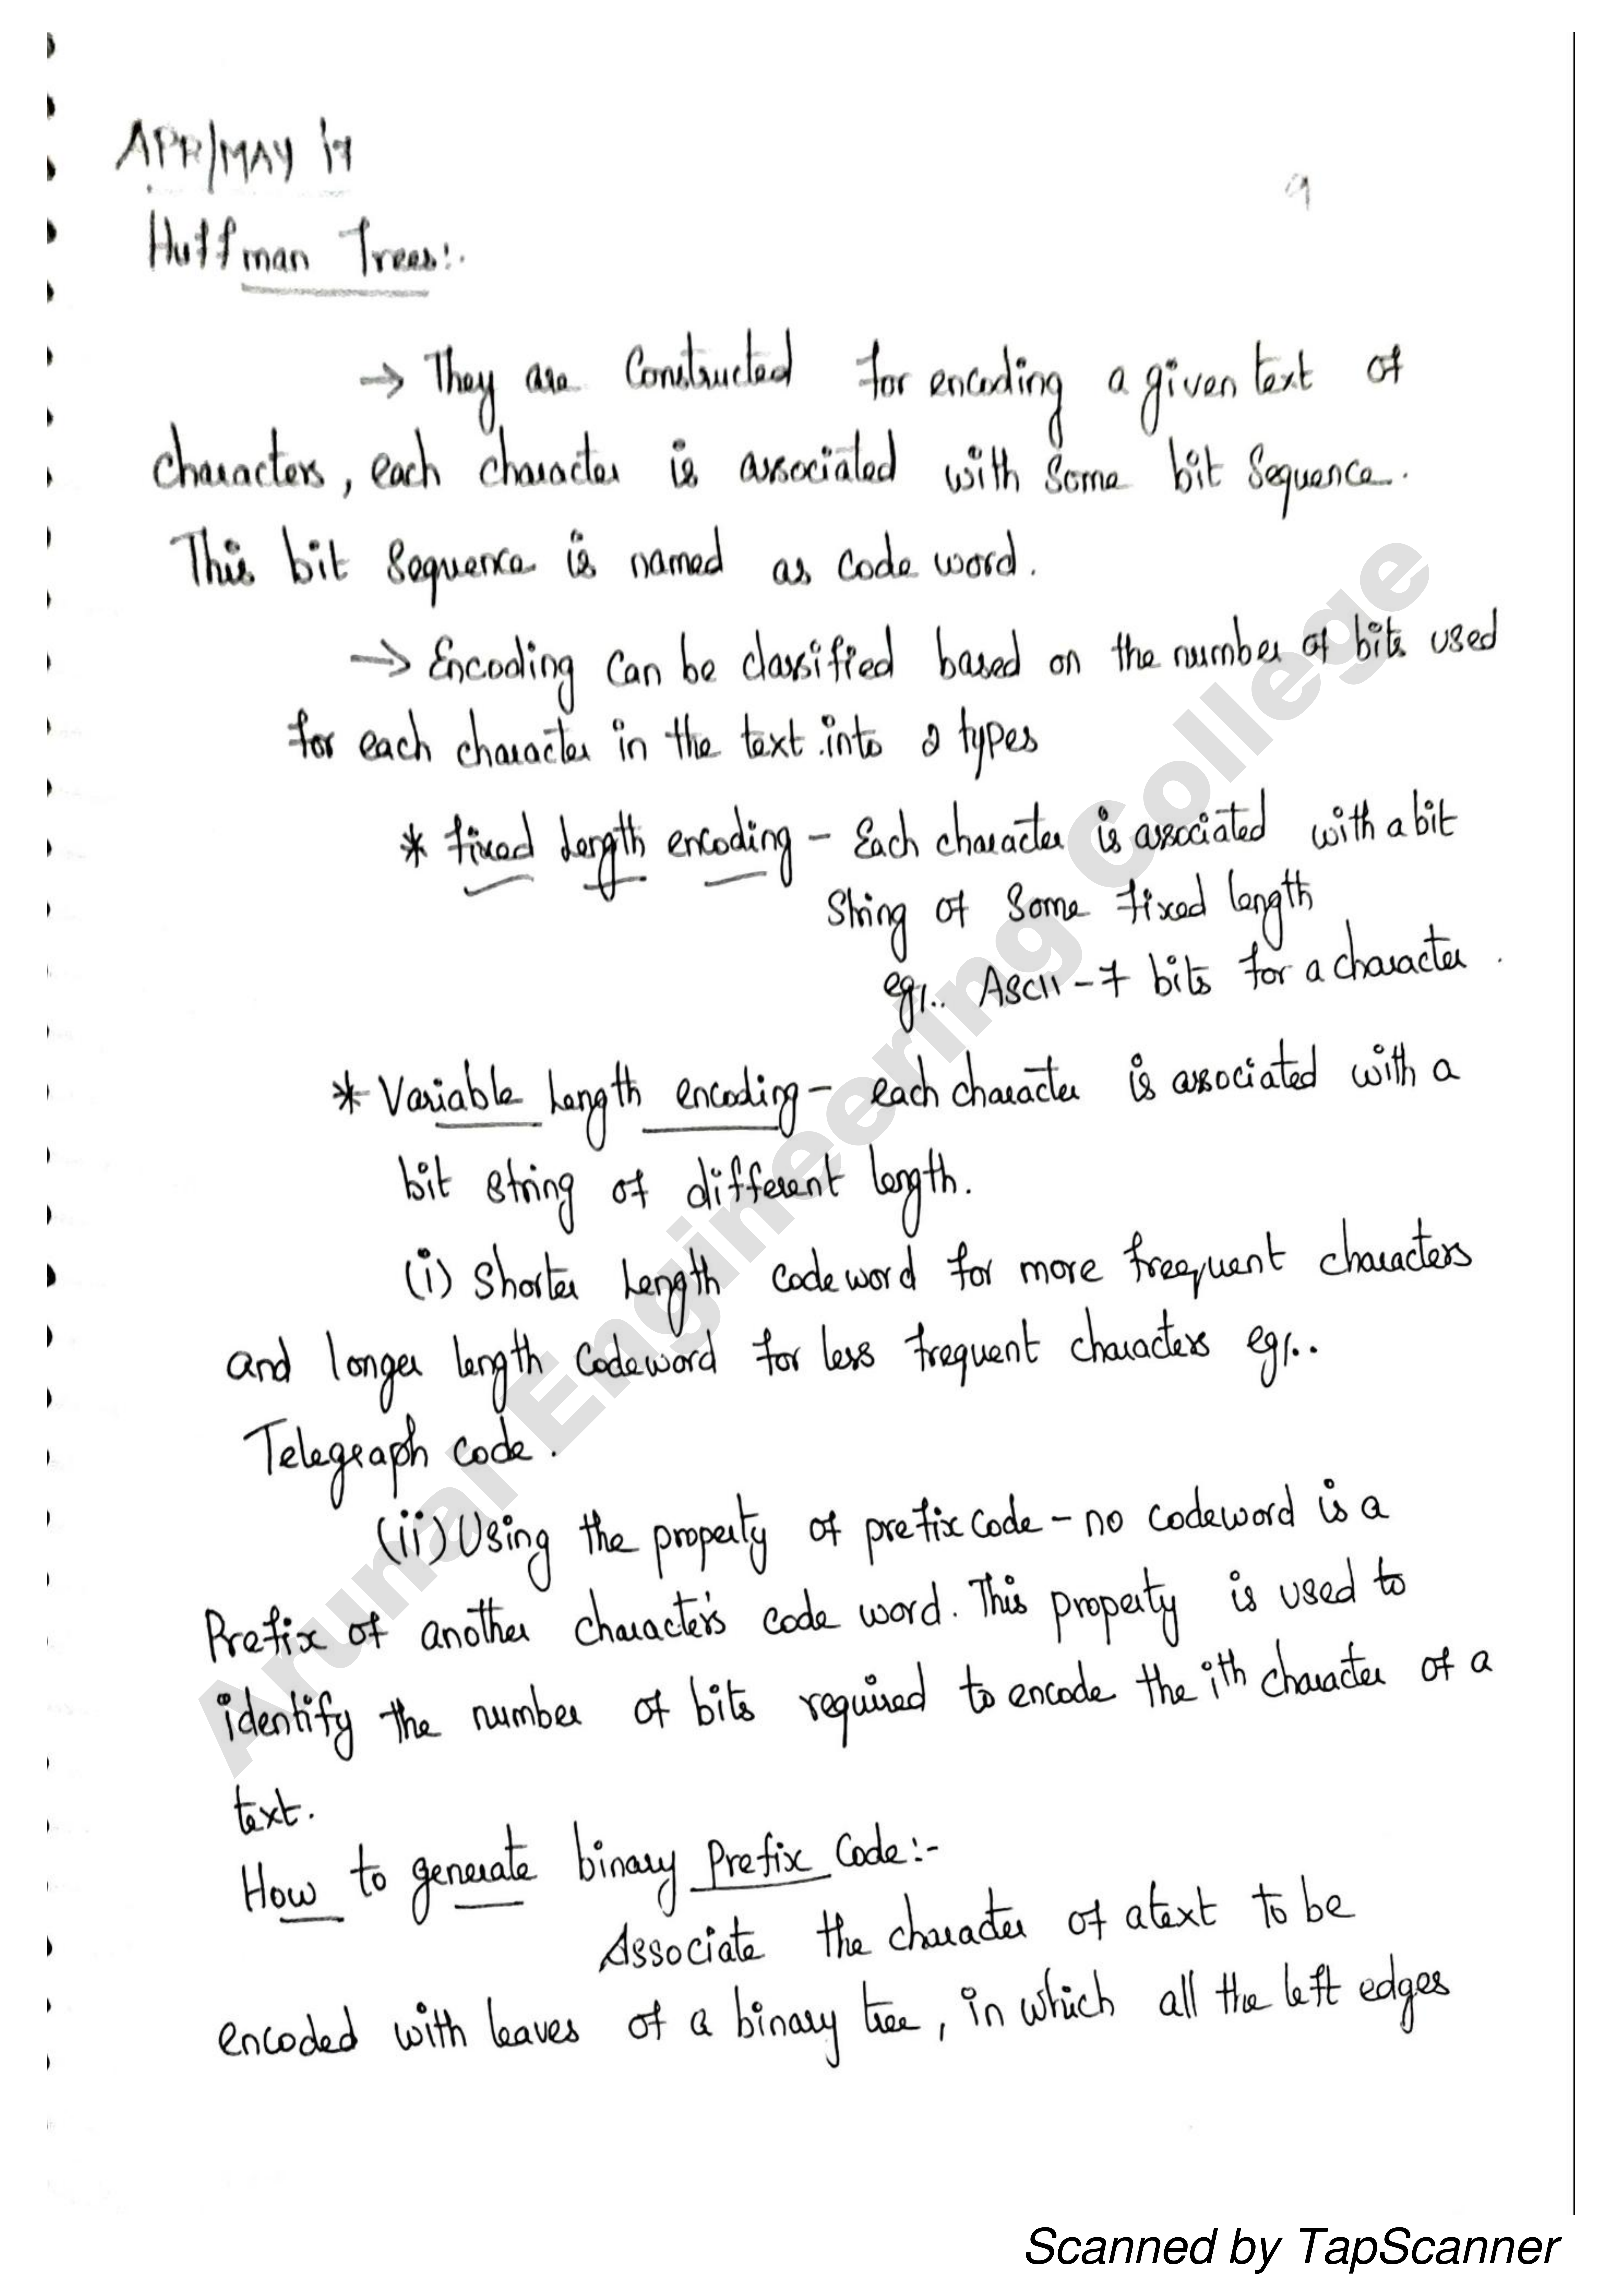 APR/MAY 17
9
Huffman Trees:.
→ They are Constructed for encoding a given text of
characters, each character is associated with some bit sequence.
This bit sequence is named as code word.
→ Encoding can be classified based on the number of bits used
for each character in the text into 2 types
* fixed length encoding - Each character is associated with a bit
string of some fixed length
eg:. ASCII - 7 bits for a character.
* Variable length encoding - each character is associated with a
bit string of different length.
(i) Shorter length codeword for more freequent characters
and longer length codeword for less frequent characters eg:.
Telegraph code.
(ii) Using the property of prefix code - no codeword is a
Prefix of another character's code word. This property is used to
identify the number of bits required to encode the ith character of a
text.
How to generate binary Prefix Code:-
Associate the character of a text to be
encoded with leaves of a binary tree, in which all the left edges
Arunai Engineering College
Scanned by TapScanner